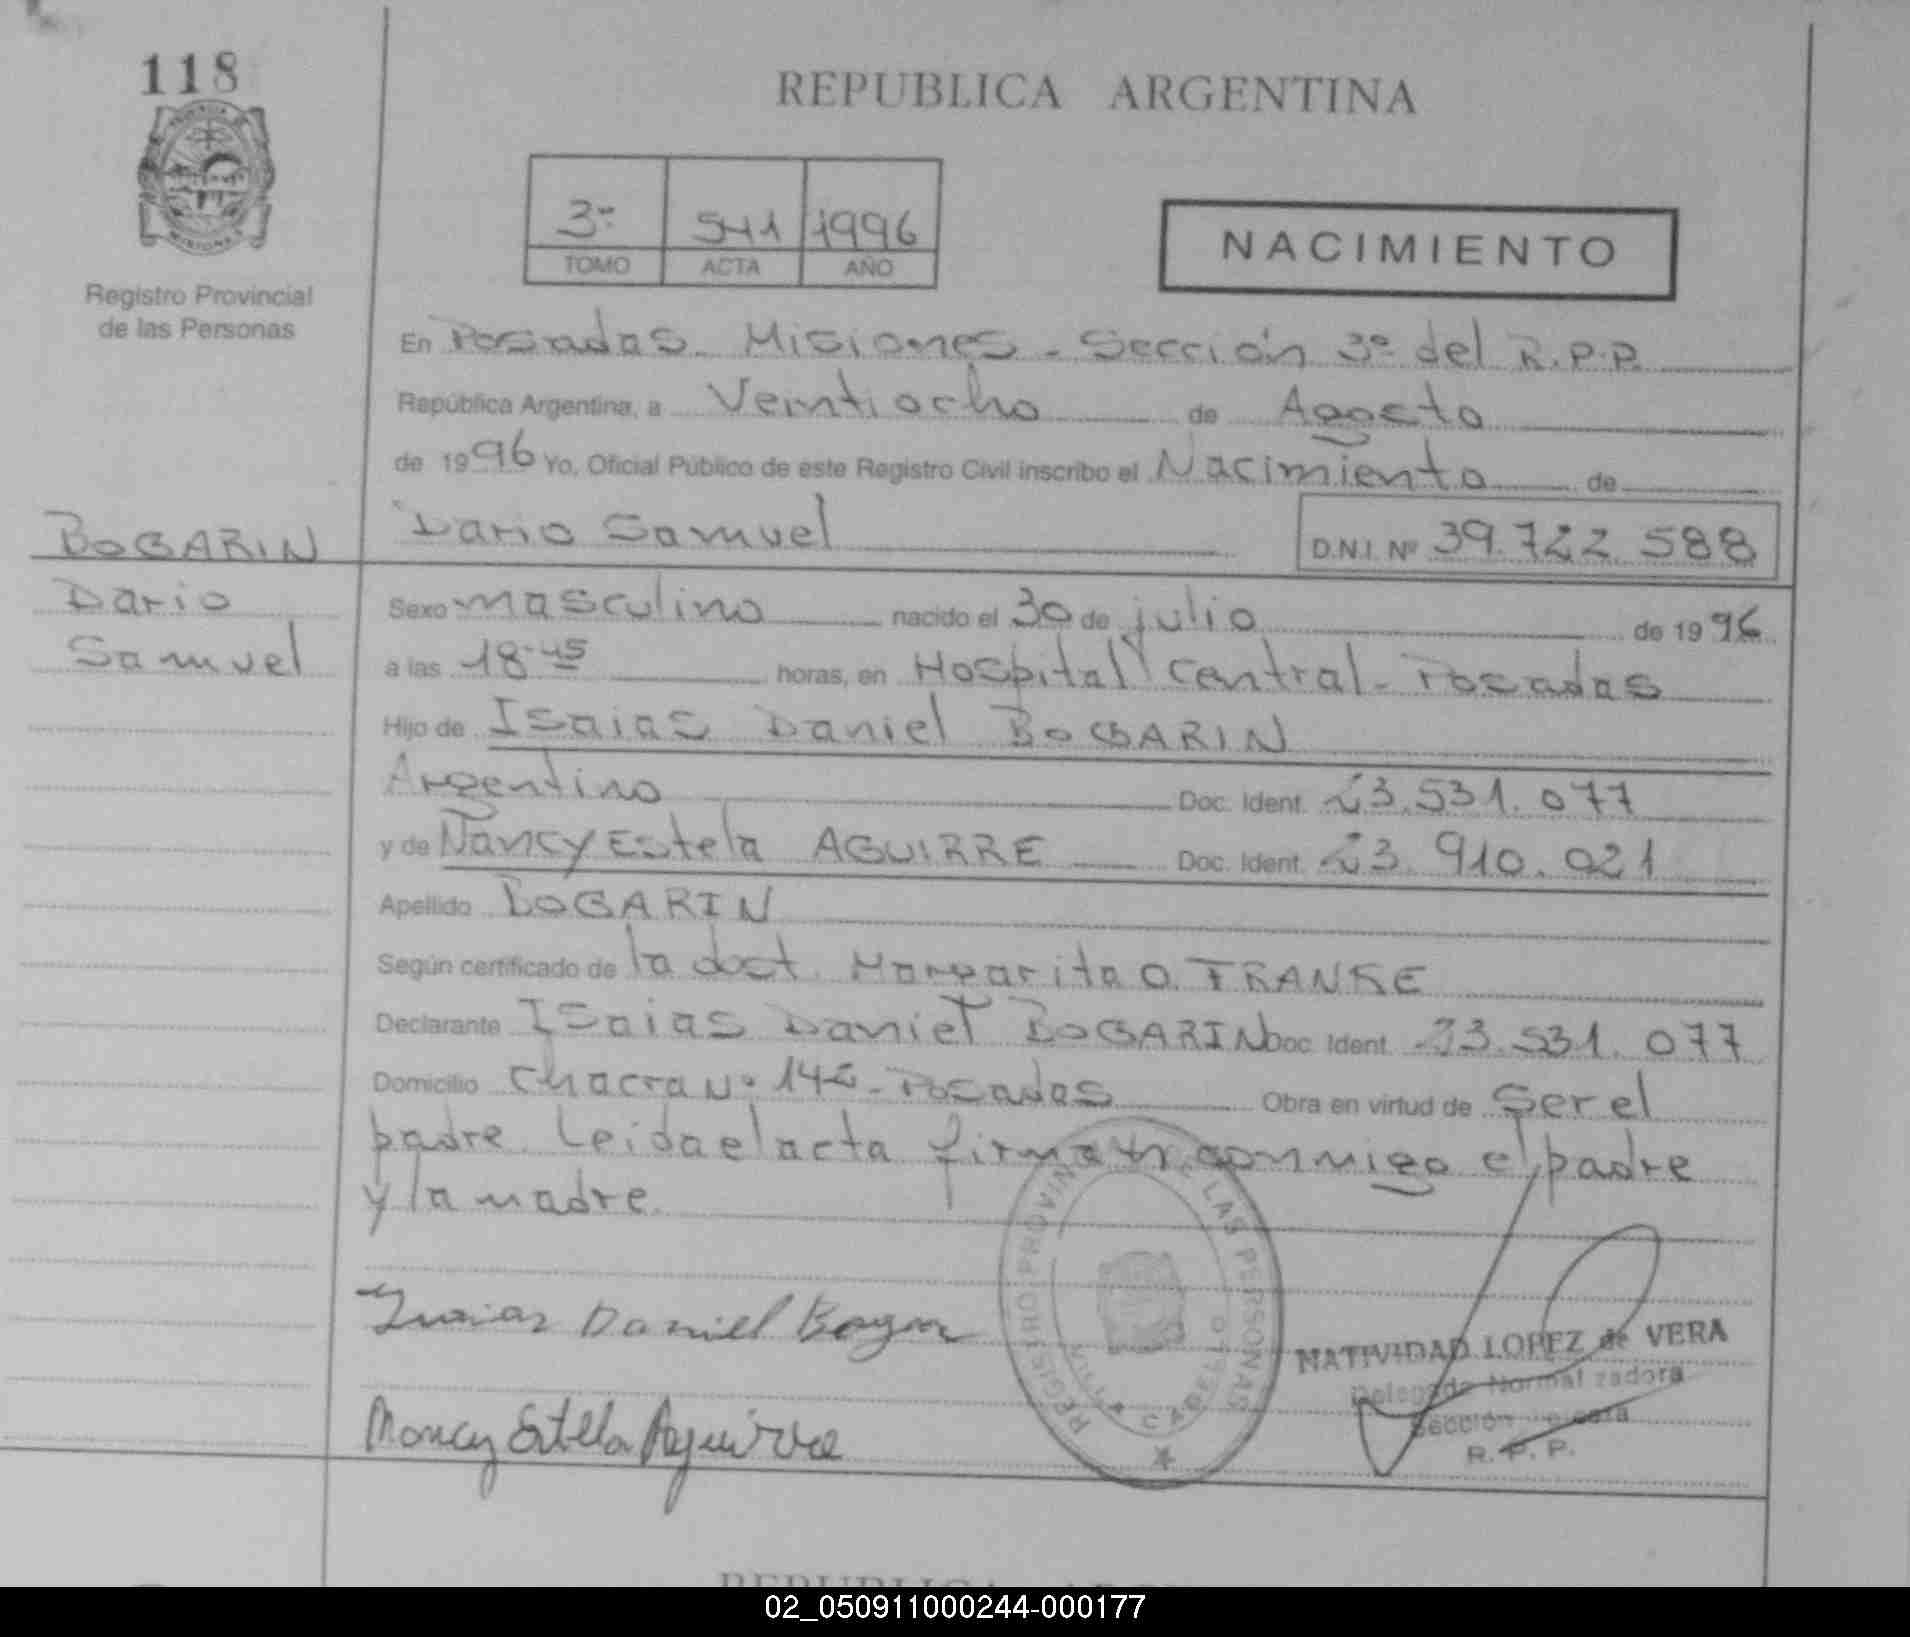 118
REPUBLICA ARGENTINA
3º 541 1996
TOMO ACTA AÑO
NACIMIENTO
Registro Provincial
de las Personas
En Posadas. Misiones - Sección 3º del R.P.P.
República Argentina, a Veintiocho de Agosto
de 1996 Yo, Oficial Público de este Registro Civil inscribo el Nacimiento de
Dario Samuel D.N.I. Nº 39.722.588
BOGARIN
Dario
Samuel
Sexo masculino nacido el 30 de julio de 1996
a las 18.45 horas, en Hospital Central - Posadas
Hijo de Isaias Daniel BOGARIN
Argentino Doc. Ident. 23.531.077
y de Nancy Estela AGUIRRE Doc. Ident. 23.910.021
Apellido BOGARIN
Según certificado de la doct. Margarita O. FRANKE
Declarante Isaias Daniel BOGARIN Doc. Ident. 23.531.077
Domicilio Chacra Nº 142 - Posadas Obra en virtud de Ser el
padre. Leida el acta firman conmigo el padre
y la madre.
REGISTRO PROVINCIAL DE LAS PERSONAS
Isaias Daniel Bogarin
NATIVIDAD LOPEZ de VERA
Delegada Normalizadora
Sección
R. P. P.
Nancy Estela Aguirre
REPUBLICA
02_050911000244-000177